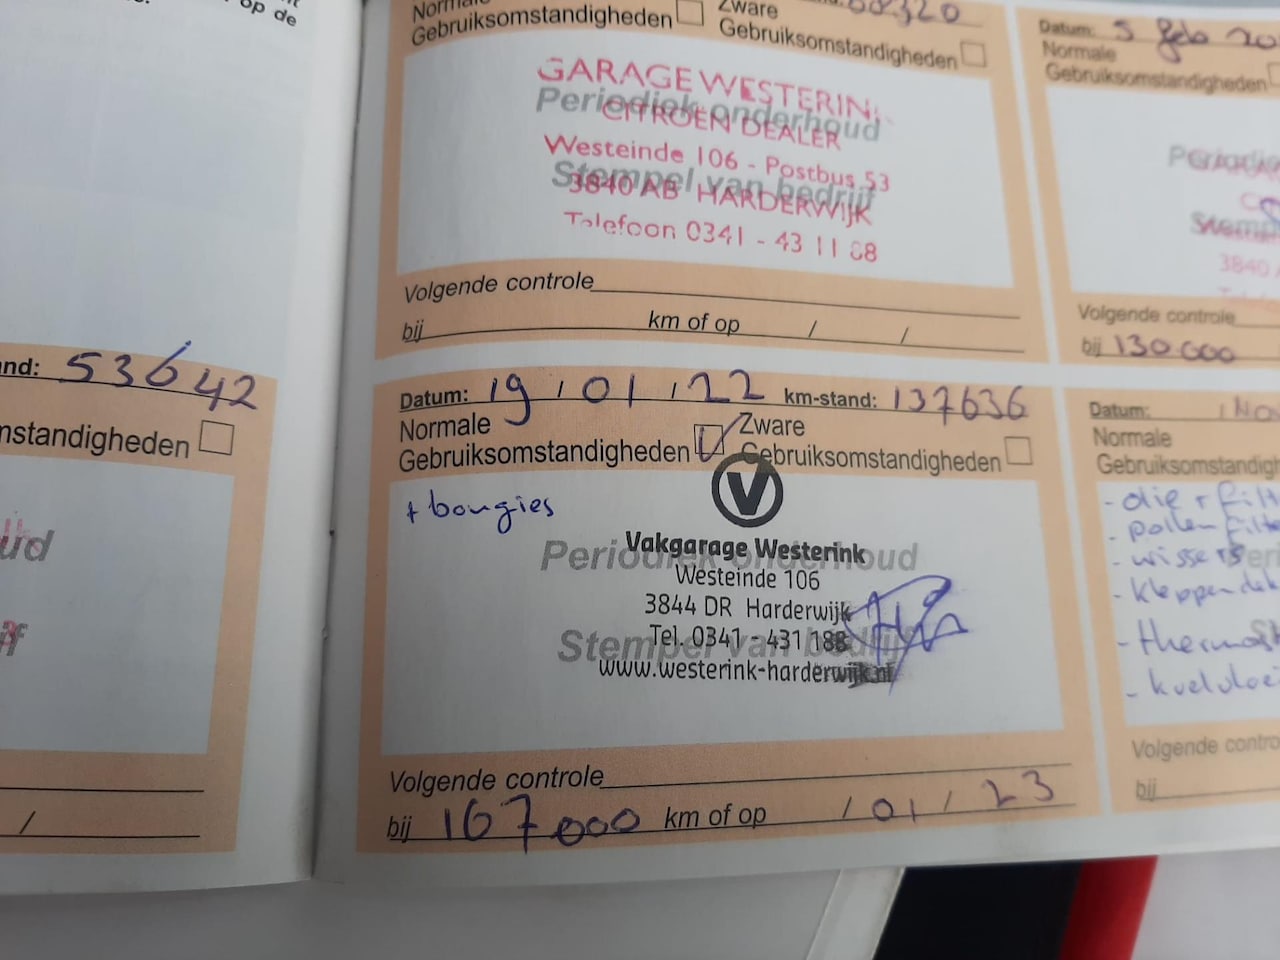 op de
nd:
53642
nstandigheden
Normale
Gebruiksomstandigheden
Zware
Gebruiksomstandigheden
GARAGE WESTERIN
Periodiek onderhoud
CITROËN DEALER
Westeinde 106 - Postbus 53
Stempel van bedrijf
3840 AB HARDERWIJK
Telefoon 0341 - 43 11 88
Volgende controle
bij km of op / /
Datum: 19 / 01 / 22 km-stand: 137636
Normale
Gebruiksomstandigheden
Zware
Gebruiksomstandigheden
+ bougies
V
Vakgarage Westerink
Periodiek onderhoud
Westeinde 106
3844 DR Harderwijk
Tel. 0341 - 431 188
Stempel van bedrijf
www.westerink-harderwijk.nl
Volgende controle
bij 167000 km of op / 01 / 23
Datum: 5 feb 20
Normale
Gebruiksomstandigheden
Volgende controle
bij 130.000
Datum:
Normale
Gebruiksomstandigh
- olie + filt
- pollenfilte
- wissers
- kleppendek
- thermost
- koelvloei
Volgende contro
bij